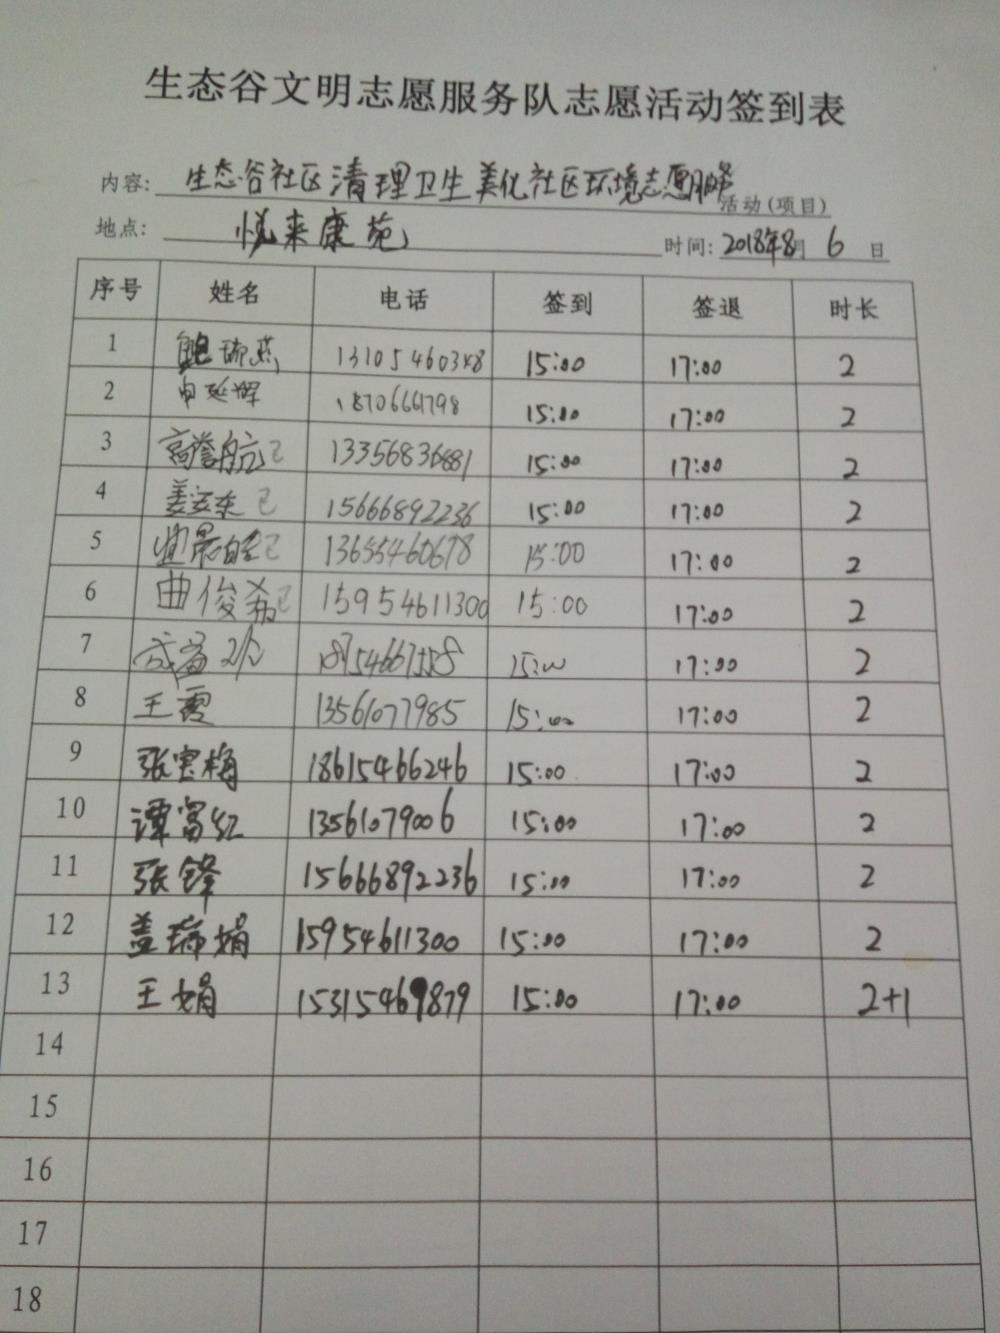 生态谷文明志愿服务队志愿活动签到表
内容: 生态谷社区清理卫生美化社区环境志愿服务 活动(项目)
地点: 悦来康苑 时间: 2018年8月 6 日
序号 姓名 电话 签到 签退 时长
1 13105460348 15:00 17:00 2
2 申延辉 18706661798 15:00 17:00 2
3 高誉航 已 13356836881 15:00 17:00 2
4 姜运东 已 15666892236 15:00 17:00 2
5 已 13655460678 15:00 17:00 2
6 曲俊 已 15954611300 15:00 17:00 2
7 15:00 17:00 2
8 王霞 13561077985 15:00 17:00 2
9 张宝梅 18615466246 15:00 17:00 2
10 谭富红 13561079006 15:00 17:00 2
11 张锋 15666892236 15:00 17:00 2
12 盖瑞娟 15954611300 15:00 17:00 2
13 王娟 15315469879 15:00 17:00 2+1
14
15
16
17
18